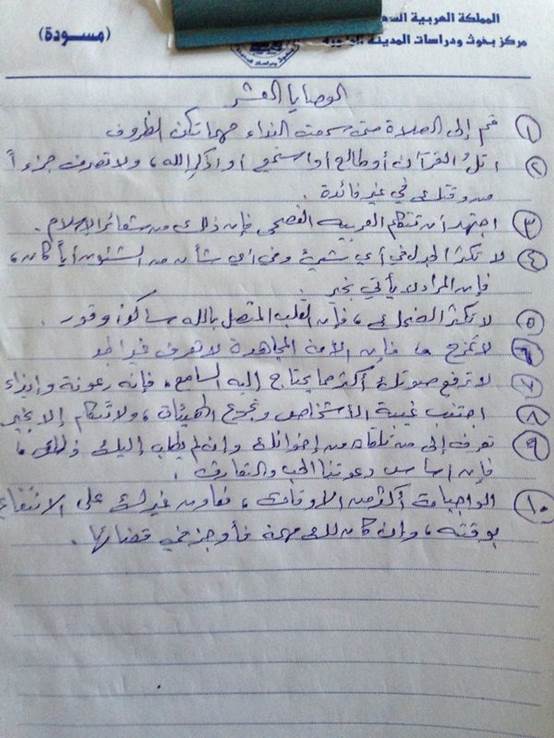 المملكة العربية السع
مركز بحوث ودراسات المدينة المنورة
(مسودة)
الوصايا العشر
١ قم إلى الصلاة متى سمعت النداء مهما تكن الظروف
٢ اتل القرآن أو طالع أو استمع أو اذكر الله، ولا تصرف جزءاً
من وقتك في غير فائدة.
٣ اجتهد أن تتكلم العربية الفصحى فإن ذلك من شعائر الإسلام.
٤ لا تكثر الجدل في أي شيء وفي أي شأن من الشئون أياً كان،
فإن المراء لا يأتي بخير.
٥ لا تكثر الضحك، فإن القلب المتصل بالله ساكن وقور.
٦ لا تمزح، فإن الأمة المجاهدة لا تعرف غير الجد
٧ لا ترفع صوتك أكثر مما يحتاج إليه السامع، فإنه رعونة وإيذاء
٨ اجتنب غيبة الأشخاص وتجريح الهيئات، ولا تتكلم إلا بخير
٩ تعرف إلى من تلقاه من إخوانك وإن لم يطلب إليك ذلك،
فإن أساس دعوتنا الحب والتعارف.
١٠ الواجبات أكثر من الأوقات، فعاون غيرك على الانتفاع
بوقته، وإن كان لك مهمة فأوجز في قضائها.